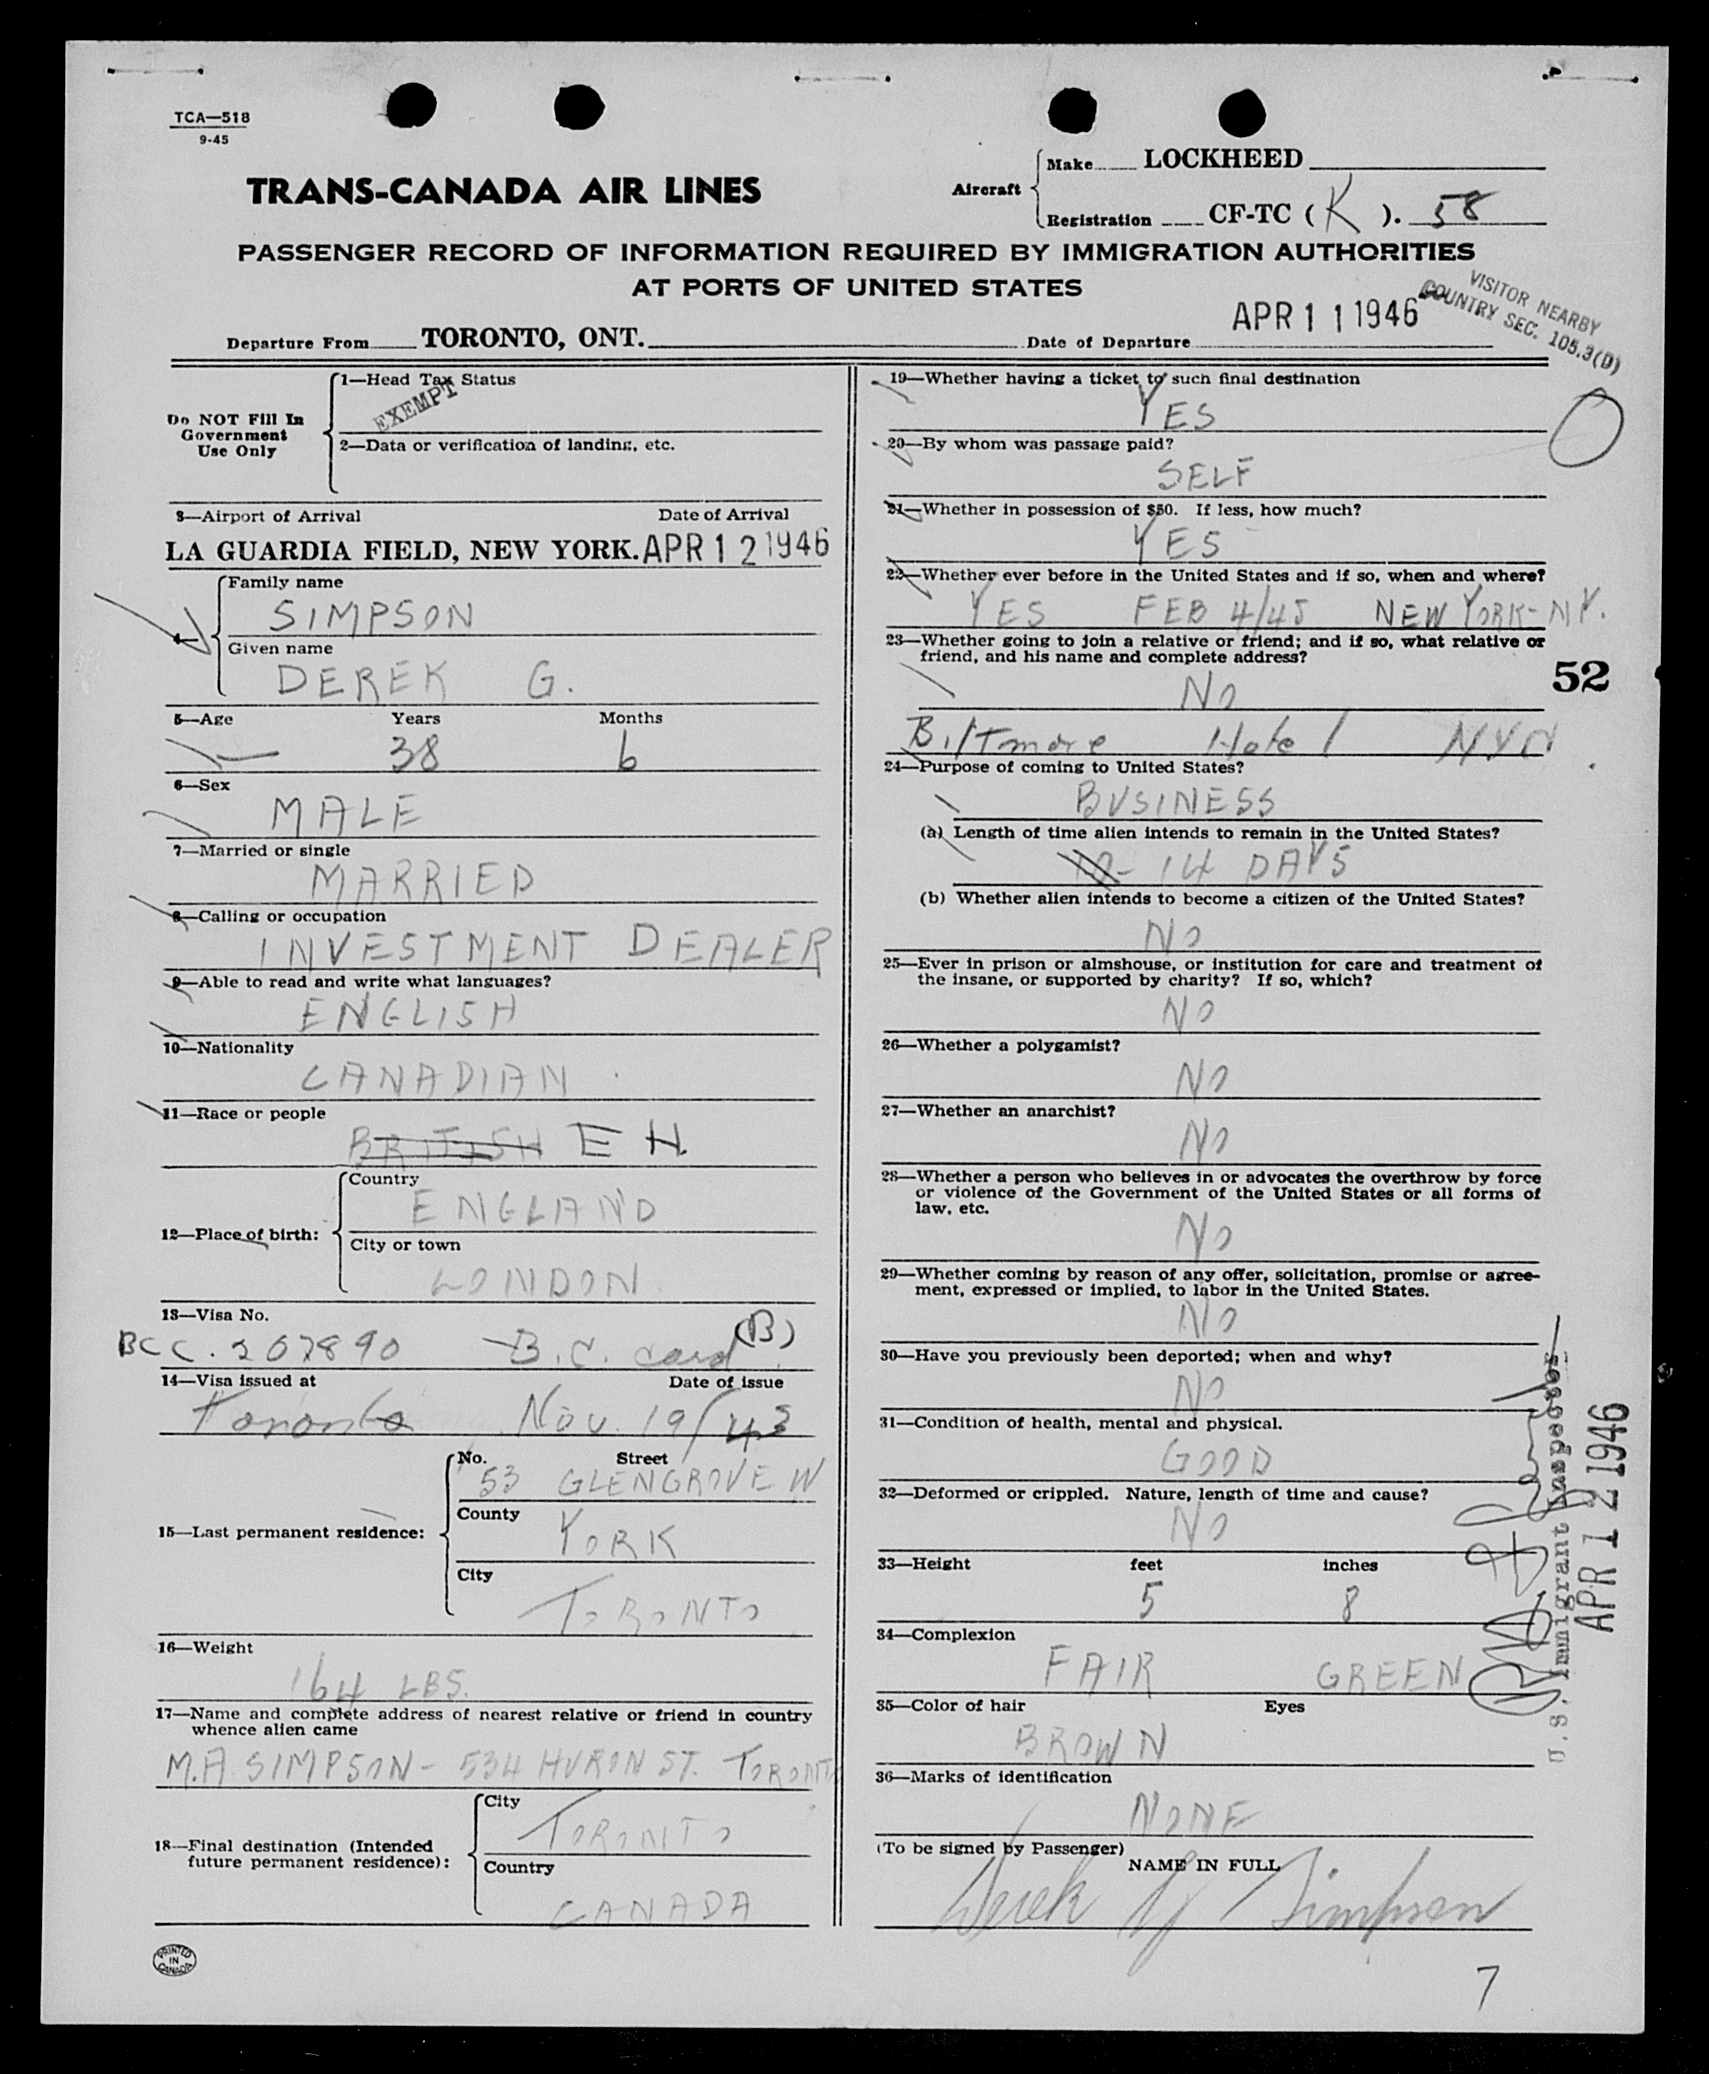 TCA—518
9-45
TRANS-CANADA AIR LINES
Aircraft
Make LOCKHEED
Registration CF-TC ( K ). 58
PASSENGER RECORD OF INFORMATION REQUIRED BY IMMIGRATION AUTHORITIES
AT PORTS OF UNITED STATES
VISITOR NEARBY
COUNTRY SEC. 105.3(D)
Departure From TORONTO, ONT. Date of Departure APR 11 1946
Do NOT Fill In
Government
Use Only
1—Head Tax Status
EXEMPT
2—Data or verification of landing, etc.
3—Airport of Arrival Date of Arrival
LA GUARDIA FIELD, NEW YORK. APR 12 1946
4—
Family name
SIMPSON
Given name
DEREK G.
5—Age Years Months
38 6
6—Sex
MALE
7—Married or single
MARRIED
8—Calling or occupation
INVESTMENT DEALER
9—Able to read and write what languages?
ENGLISH
10—Nationality
CANADIAN
11—Race or people
BRITISH E H
12—Place of birth:
Country
ENGLAND
City or town
LONDON
13—Visa No.
BCC. 207890 B.C. card (B)
14—Visa issued at Date of issue
Toronto Nov. 19/43
15—Last permanent residence:
No. Street
53 GLENGROVE W
County
YORK
City
TORONTO
16—Weight
164 LBS.
17—Name and complete address of nearest relative or friend in country
whence alien came
M.A. SIMPSON - 534 HURON ST. TORONTO
18—Final destination (Intended
future permanent residence):
City
TORONTO
Country
CANADA
PRINTED
IN
CANADA
19—Whether having a ticket to such final destination
YES
20—By whom was passage paid?
SELF
21—Whether in possession of $50. If less, how much?
YES
22—Whether ever before in the United States and if so, when and where?
YES FEB 4/45 NEW YORK-NY.
23—Whether going to join a relative or friend; and if so, what relative or
friend, and his name and complete address?
No
52
Biltmore Hotel NYC
24—Purpose of coming to United States?
BUSINESS
(a) Length of time alien intends to remain in the United States?
10- 14 DAYS
(b) Whether alien intends to become a citizen of the United States?
No
25—Ever in prison or almshouse, or institution for care and treatment of
the insane, or supported by charity? If so, which?
NO
26—Whether a polygamist?
NO
27—Whether an anarchist?
NO
28—Whether a person who believes in or advocates the overthrow by force
or violence of the Government of the United States or all forms of
law, etc.
NO
29—Whether coming by reason of any offer, solicitation, promise or agree-
ment, expressed or implied, to labor in the United States.
NO
30—Have you previously been deported; when and why?
NO
31—Condition of health, mental and physical.
GOOD
32—Deformed or crippled. Nature, length of time and cause?
NO
33—Height feet inches
5 8
34—Complexion
FAIR GREEN
35—Color of hair Eyes
BROWN
36—Marks of identification
NONE
(To be signed by Passenger)
NAME IN FULL
Derek G Simpson
U.S. Immigrant Inspector
APR 12 1946
7